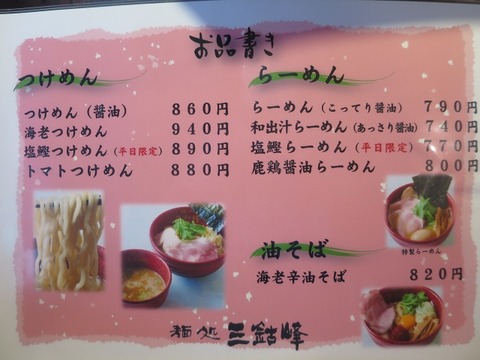 お品書き
つけめん
つけめん（醤油） 860円
海老つけめん 940円
塩鰹つけめん（平日限定） 890円
トマトつけめん 880円
らーめん
らーめん（こってり醤油） 790円
和出汁らーめん（あっさり醤油） 740円
塩鰹らーめん（平日限定） 770円
鹿鶏醤油らーめん 800円
特製らーめん
油そば
海老辛油そば 820円
麺処 三鈷峰